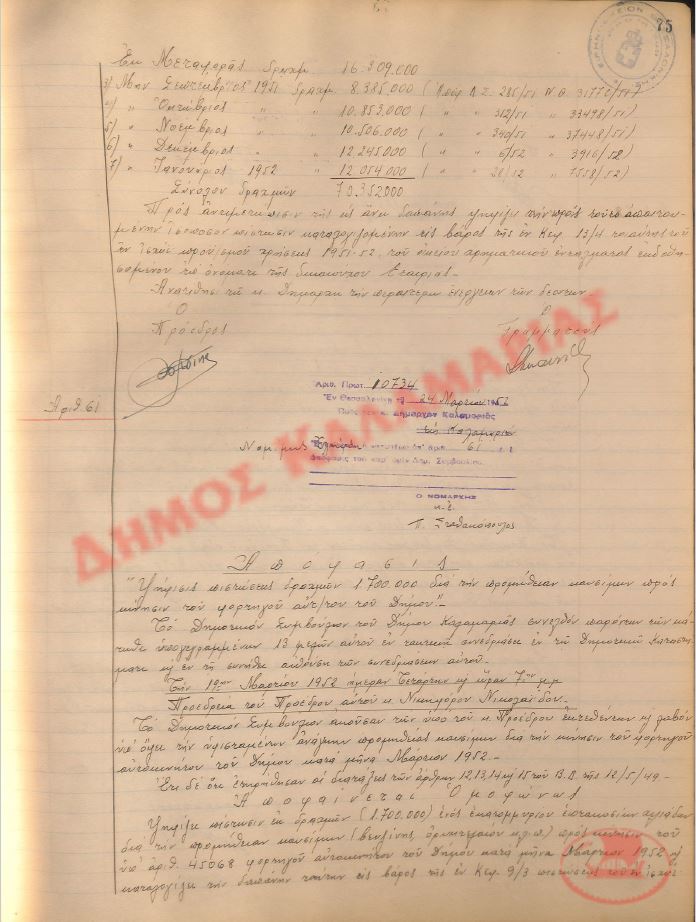 75
Ἐκ Μεταφορᾶς δραχμ. 16.309.000
3) Μην Σεπτεμβρίος 1951 δραχμ. 8.385.000 ( Δ.Σ. 285/51 Ν.Θ.
4) " Ὀκτώβριος " " 10.853.000 ( " " 312/51 " 33498/51)
5) " Νοέμβριος " " 10.506.000 ( " " 340/51 " 37448/51)
6) " Δεκέμβριος " " 12.245.000 ( " " 6/52 " 3916/52)
7) " Ἰανουάριος 1952 " 12.054.000 ( " " " 7558/52)
Σύνολον δραχμῶν 70.352.000
Πρός ἀντιμετώπισιν τῆς ὡς ἄνω δαπάνης ψηφίζει
πίστωσιν καταλογιζομένην εἰς βάρος τῆς ἐν Κεφ. 13/4 τοῦ
ἐν ἰσχύϊ προϋπ/σμοῦ χρήσεως 1951-52, τοῦ οἰκείου χρηματικοῦ ἐντάλματος ἐκδοθη-
σομένου τῷ ὀνόματι τῆς δικαιούχου Ἑταιρίας.-
Ἀνατίθησι τῷ κ. Δημάρχῳ τήν περαιτέρω ἐνέργειαν τῶν δεόντων
Ὁ Ὁ
Πρόεδρος Γραμματεύς
Ἀριθ. 61
Ἀριθ. Πρωτ. 10734
Ἐν Θεσσαλονίκῃ τῇ 24 Μαρτίου 1952
Δήμαρχον Καλαμαριᾶς
Καλαμαριάν
Νομίμως ὑπ' ἀριθ. 61
ἀπόφασις τοῦ Δημ. Συμβουλίου
Ο ΝΟΜΑΡΧΗΣ
κ.ἐ.
Π. Σταθακόπουλος
ΔΗΜΟΣ ΚΑΛΑΜΑΡΙΑΣ
Ἀπόφασις
"Ψήφισις πιστώσεως δραχμῶν 1.700.000 διά τήν προμήθειαν καυσίμων πρός
κίνησιν τοῦ φορτηγοῦ αὐτ/του τοῦ Δήμου".-
Τό Δημοτικόν Συμβούλιον τοῦ Δήμου Καλαμαριᾶς συνελθόν παρόντων τῶν κά-
τωθι ὑπογεγραμμένων 13 μελῶν αὐτοῦ ἐν τακτικῇ συνεδριάσει ἐν τῷ Δημοτικῷ Καταστή-
ματι κ ἐν τῇ συνήθει αἰθούσῃ τῶν συνεδριάσεων αὐτοῦ.
Τήν 19ην Μαρτίου 1952 ἡμέραν Τετάρτην κ ὥραν 7ην μ.μ.
Προεδρείᾳ τοῦ Προέδρου αὐτοῦ κ. Νικηφόρου Νικολαΐδου.-
Τό Δημοτικόν Συμβούλιον ἀκοῦσαν τῶν ὑπό τοῦ κ. Προέδρου ἐκτεθέντων κ λαβόν
ὑπ' ὄψει τήν ὑφισταμένην ἀνάγκην προμηθείας καυσίμων διά τήν κίνησιν τοῦ φορτηγοῦ
αὐτοκινήτου τοῦ Δήμου κατά μῆνα Μάρτιον 1952.-
Ἔτι δέ ὅτι ἐτηρήθησαν αἱ διατάξεις τῶν ἄρθρων 12,13,14 κ 15 τοῦ Β.Δ. τῆς 12/5/49.-
Ἀποφαίνεται Ὁμοφώνως
Ψηφίζει πίστωσιν ἐκ δραχμῶν (1.700.000) ἑνός ἑκατομμυρίου ἑπτακοσίων χιλιάδων
διά τήν προμήθειαν καυσίμων (βενζίνης, ὀρυκτελαίου κ.λ.π.) πρός κίνησιν τοῦ
ὑπ' ἀριθ. 45068 φορτηγοῦ αὐτοκινήτου τοῦ Δήμου κατά μῆνα Μάρτιον 1952 κ
καταλογίζει τήν δαπάνην ταύτην εἰς βάρος τῆς ἐν Κεφ. 9/3 πιστώσεως τοῦ ἐν ἰσχύϊ